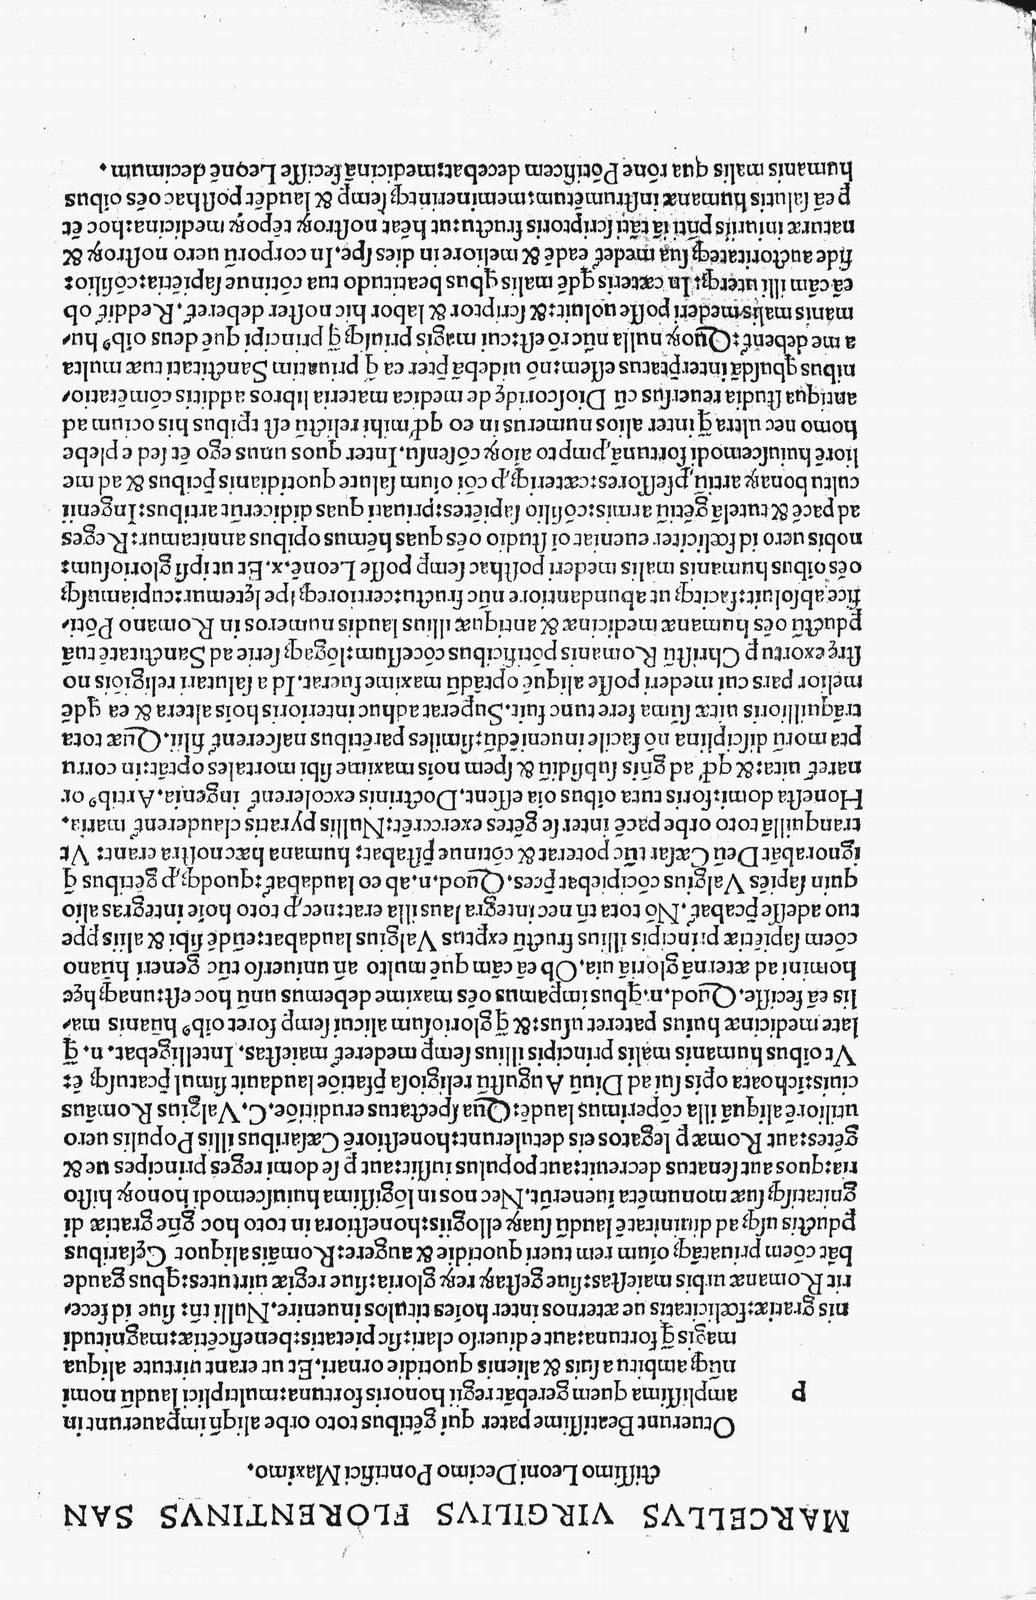 MARCELLVS VIRGILIVS FLORENTINVS SAN
ctissimo Leoni Decimo Pontifici Maximo.
p
Otuerunt Beatissime pater qui gẽtibus toto orbe aliqñ impauerunt in
amplissima quem gerebãt regii honoris fortuna: multiplici laudũ nomi
nũq ambitu a suis & alienis quotidie ornari. Et ut erant uirtute aliqua
magis q̃ fortuna: aut e diuerso clari: sic pietatis: beneficẽtiæ: magnitudi
nis gratiæ: fœlicitatis ue æternos inter hoĩes titulos inuenire. Nulli tñ: siue id fece/
rit Romanæ urbis maiestas: siue gestaꝝ reꝝ gloria: siue regiæ uirtutes: qbus gaude
bãt cõem priuatãꝗ oĩum rem tueri quotidie & augere: Romãis aliquot Cęsaribus
ꝑductis usꝗ ad diuinitatẽ laudũ suaꝝ ellogiis: honestiora in toto hoc gñe gratiæ di
gnitatisꝗ suæ monumẽta iuenerũt. Nec nos in lõgissima huiuscemodi honoꝝ histo
ria: quos aut senatus decreuit: aut populus iussit: aut ꝑ se domi reges principes ue &
gẽtes: aut Romæ ꝑ legatos eis detulerunt: honestiorẽ Cæsaribus illis Populis uero
utiliorẽ aliquã illa cõperimus laudẽ: Qua spectatus eruditiõe. C. Valgius Romãus
ciuis: ĩchoata opis sui ad Diuũ Augustũ religiosa p̃fatiõe laudauit simul p̃catusꝗ ẽt:
Vt oĩbus humanis malis principis illius semꝑ mederet maiestas. Intelligebat. n. q̃
late medicinæ huius pateret usus: & q̃ gloriosum alicui semꝑ foret oibꝰ hũanis ma/
lis eã fecisse. Quod. n. qbus imꝑamus oẽs maxime debemus unũ hoc est: unaꝗ hęc
homini ad æternã gloriã uia. Ob eã cãm quẽ multo añ uniuerso tũc generi hũano
cõem sapiẽtiæ principis illius fructũ exꝑtus Valgius laudabat: eũdẽ sibi & aliis ꝓpe
tuo adesse p̃cabat. Nõ tota tñ nec integra laus illa erat: nec ꝓ toto hoĩe integras alio
quin sapiẽs Valgius cõcipiebat p̃ces. Quod. n. ab eo laudabat: quodꝗ ꝓ gẽtibus q̃
ignorabãt Deũ Cæsar tũc poterat & cõtinue p̃stabat: humana hæc nostra erant: Vt
tranquillã toto orbe pacẽ inter se gẽtes exercerẽt: Nullis pyratis clauderent maria.
Honesta domi: foris tuta oĩbus oĩa essent. Doctrinis excolerent ingenia. Artibꝰ or
naret uita: & qđ ad gñis subsidiũ & spem nois maxime sibi mortales optãt: in corru
pta morũ disciplina nõ facile inueniẽdũ: similes parẽtibus nascerent filii. Quæ tota
trãquillioris uitæ sũma fere tunc fuit. Superat adhuc interioris hoĩs altera & ea qdẽ
melior pars cui mederi posse aliquẽ optãdũ maxime fuerat. Id a salutari religiõis no
stræ exortu ꝑ Christũ Romanis põtificibus cõcessum: lõgaꝗ serie ad Sanctitatẽ tuã
ꝑductũ oẽs humanæ medicinæ & antiquæ illius laudis numeros in Romano Põti/
fice absoluit: facitꝗ ut abundantiore nũc fructu: certioreꝗ spe lętemur: cupiamusꝗ
oẽs oĩbus humanis malis mederi posthac semꝑ posse Leonẽ. x. Et ut ipsi gloriosum:
nobis uero id fœliciter eueniat oĩ studio oẽs quas hẽmus opibus annitamur: Reges
ad pacẽ & tutelã gẽtiũ armis: cõsilio sapiẽtes: priuati quas didicerũt artibus: Ingenii
cultu bonaꝝ artiũ ꝓfessores: cæteriꝗ ꝓ cõi oĩum salute quotidianis p̃cibus & ad me
liorẽ huiuscemodi fortunã ꝓmpto aĩoꝝ cõsensu. Inter quos unus ego ẽt sed e plebe
homo nec ultra q̃ inter alios numerus in eo qđ mihi relictũ est tꝑibus his ocium ad
antiqua studia reuersus cũ Dioscoridę de medica materia libros additis cõmẽtatio/
nibus qbusdã interp̃tatus essem: nõ uidebã p̃ter ea q̃ priuatim Sanctitati tuæ multa
a me debent: Quoꝝ nulla nũc rõ est: cui magis priusꝗ q̃ principi quẽ deus oibꝰ hu/
manis malis mederi posse uoluit: & scriptor & labor hic noster deberet. Reddit ob
eã cãm illi uterꝗ: In cæteris qdẽ malis qbus beatitudo tua cõtinue sapiẽtia: cõsilio:
fide auctoritateꝗ sua medet eadẽ & meliore in dies spe. In corporũ uero nostroꝝ &
naturæ iniuriis pñti iã tãti scriptoris fructu: ut hẽat nostroꝝ tẽpoꝝ medicina: hoc ẽt
ꝑ eã salutis humanæ instrumẽtum: meminerintꝗ semꝑ & laudẽt posthac oẽs oĩbus
humanis malis qua rõne Põtificem decebat: medicinã fecisse Leonẽ decimum.